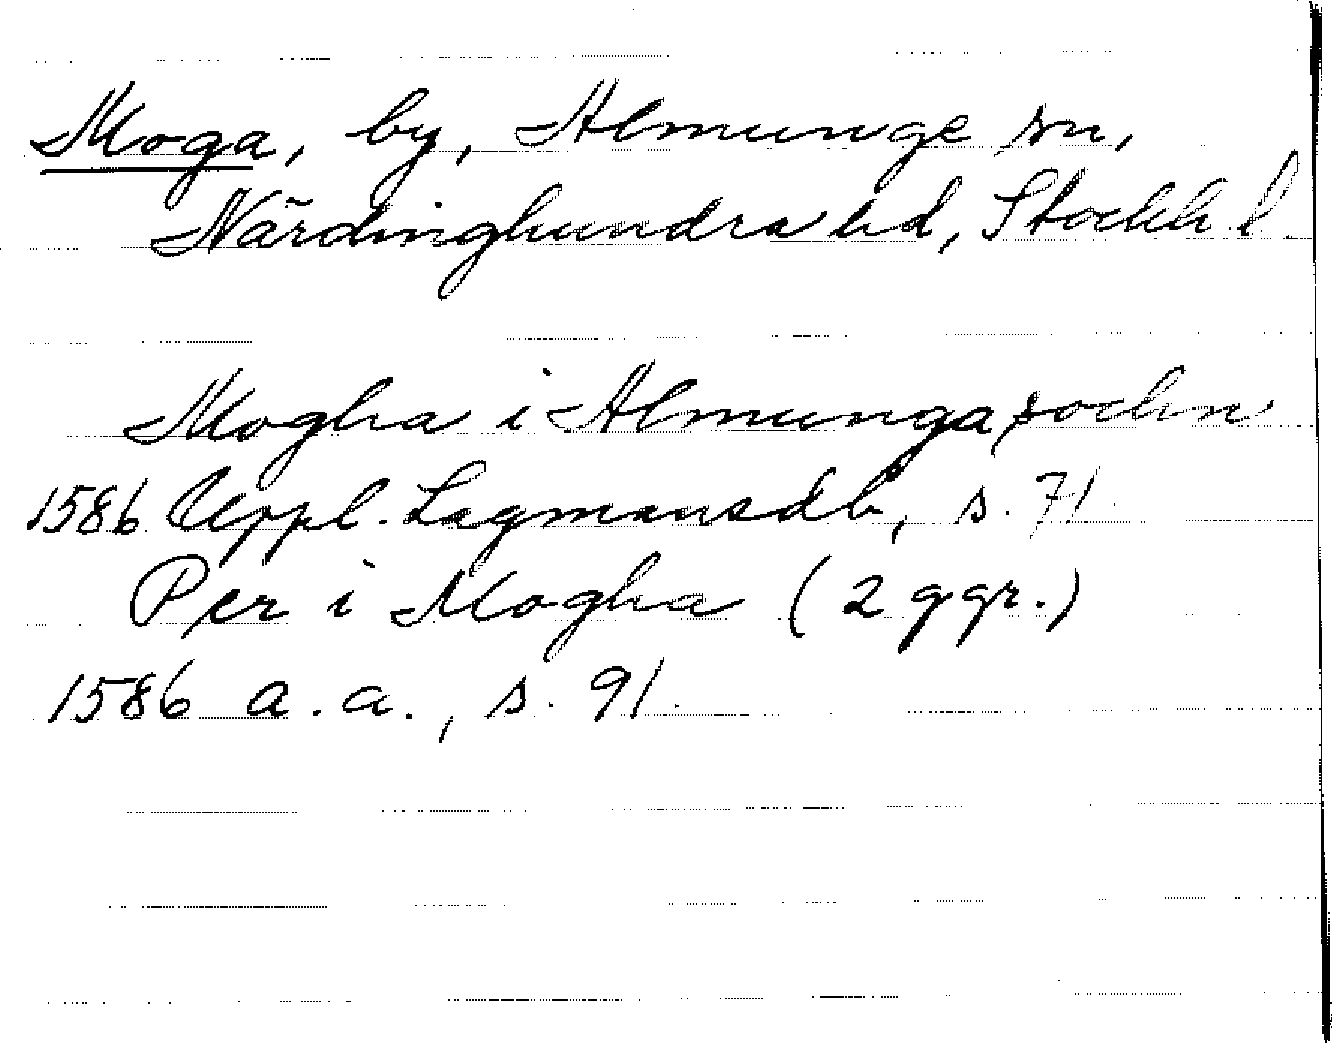 Moga, by, Almunge sn,
Närdinghundra hd, Stockh l.
Mogha i Almunga sochn
1586 Uppl. Lagmansdb, s. 71.
Per i Mogha (2 ggr.)
1586 a.a., s. 91.